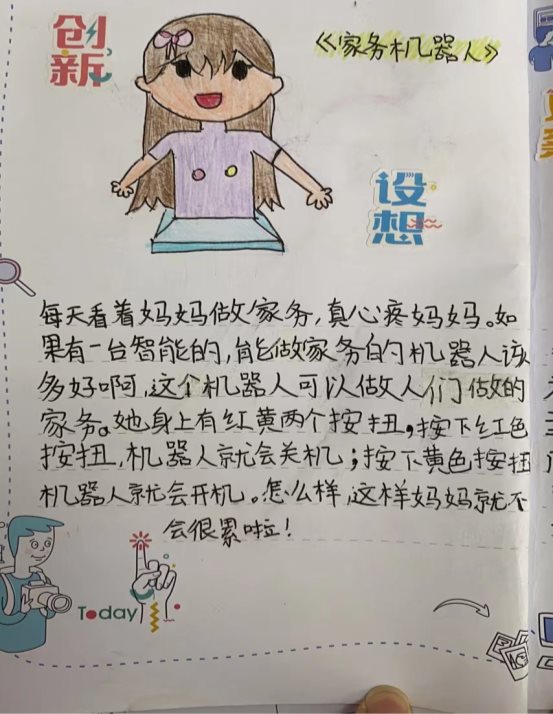 创新
《家务机器人》
设想
每天看着妈妈做家务,真心疼妈妈。如
果有一台智能的,能做家务的机器人该
多好啊,这个机器人可以做人们做的
家务。她身上有红黄两个按扭,按下红色
按扭,机器人就会关机;按下黄色按扭
机器人就会开机。怎么样,这样妈妈就不
会很累啦!
Today